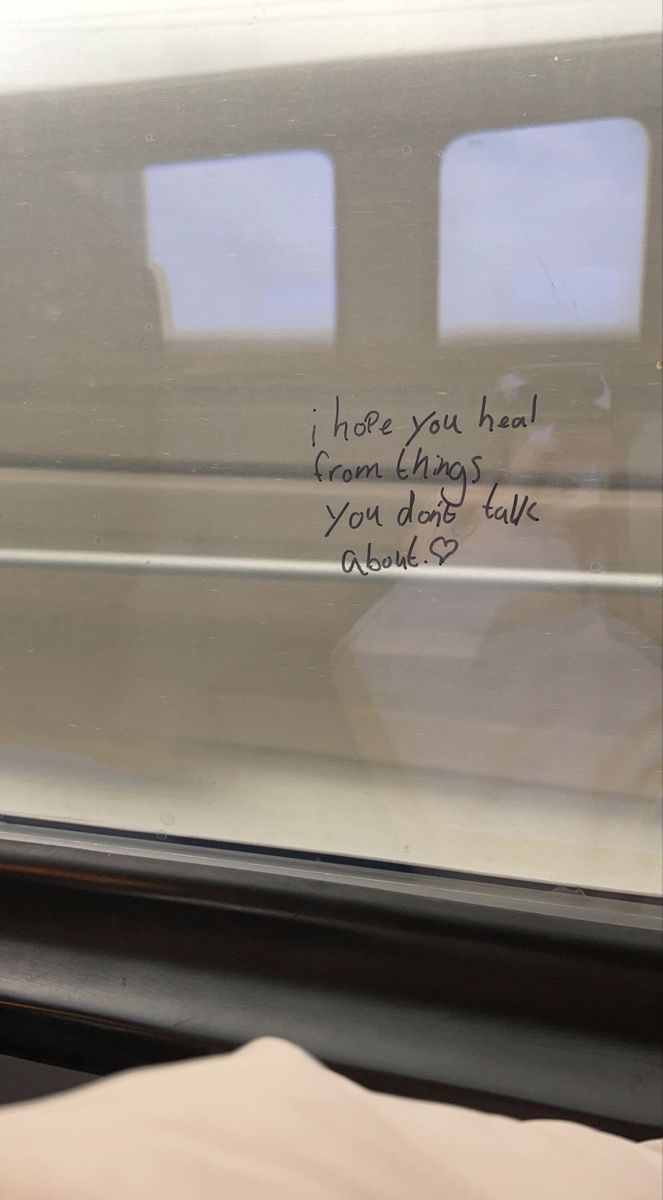 i hope you heal
from things
you don't talk
about.♡